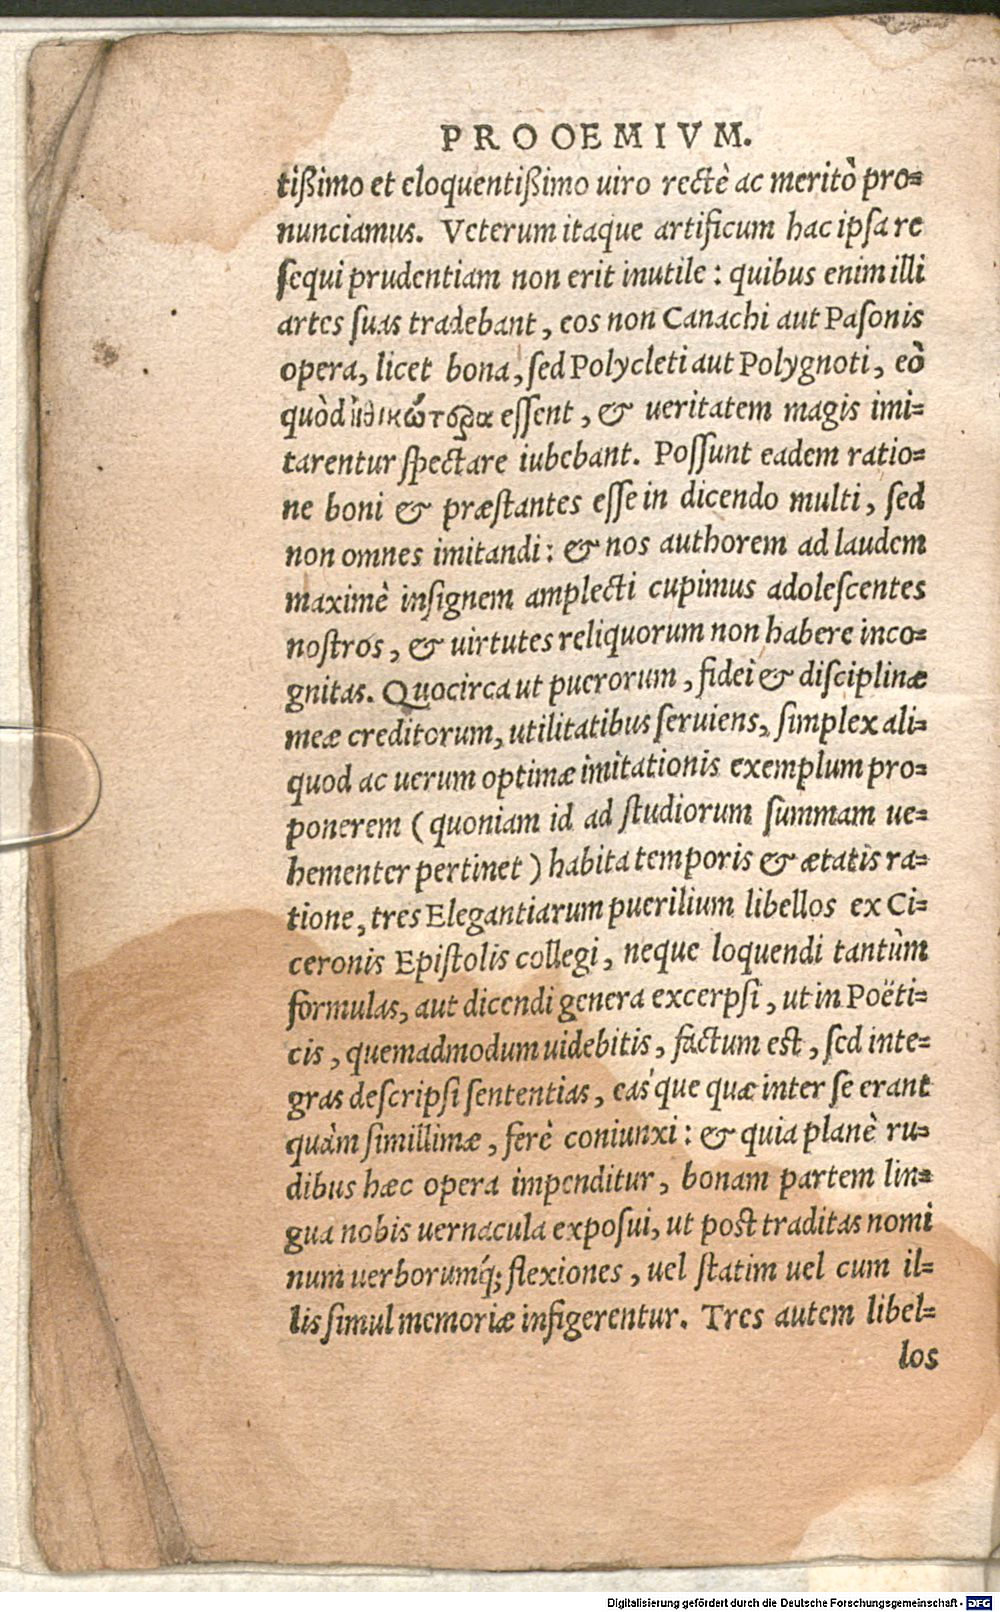 PROOEMIVM.
tißimo et eloquentißimo uiro rectè ac meritò pro=
nunciamus. Veterum itaque artificum hac ipsa re
ſequi prudentiam non erit inutile: quibus enim illi
artes ſuas tradebant, eos non Canachi aut Paſonis
opera, licet bona, ſed Polycleti aut Polygnoti, eò
quòd ἠθικώτερα eſſent, & ueritatem magis imi=
tarentur ſpectare iubebant. Poſſunt eadem ratio=
ne boni & præſtantes eſſe in dicendo multi, ſed
non omnes imitandi: & nos authorem ad laudem
maximè inſignem amplecti cupimus adoleſcentes
noſtros, & uirtutes reliquorum non habere inco=
gnitas. Quocirca ut puerorum, fidei & diſciplinæ
meæ creditorum, utilitatibus ſeruiens, ſimplex ali=
quod ac uerum optimæ imitationis exemplum pro=
ponerem (quoniam id ad ſtudiorum ſummam ue=
hementer pertinet) habita temporis & ætatis ra=
tione, tres Elegantiarum puerilium libellos ex Ci=
ceronis Epiſtolis collegi, neque loquendi tantùm
formulas, aut dicendi genera excerpſi, ut in Poëti=
cis, quemadmodum uidebitis, factum est, ſed inte=
gras deſcripſi ſententias, eas'que quæ inter ſe erant
quàm ſimillimæ, ferè coniunxi: & quia planè ru=
dibus hæc opera impenditur, bonam partem lin=
gua nobis uernacula expoſui, ut post traditas nomi
num uerborumq́; flexiones, uel ſtatim uel cum il=
lis ſimul memoriæ infigerentur. Tres autem libel=
los
Digitalisierung gefördert durch die Deutsche Forschungsgemeinschaft - DFG